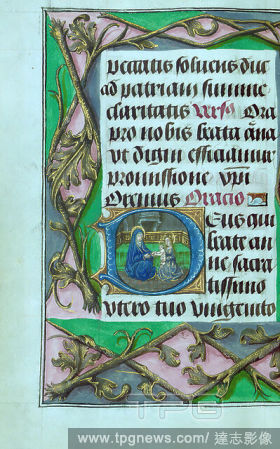 peccatis solucis duc
ad patriam summe
claritatis Versꝯ Ora
pro nobis beata āna
vt digni efficiamur
promissione xp̄i
Oremus Oracio
Deus qui
beate an
ne sacra
tissimo
vtero tuo vingenito
TPG
www.tpgnews.com/ 達志影像